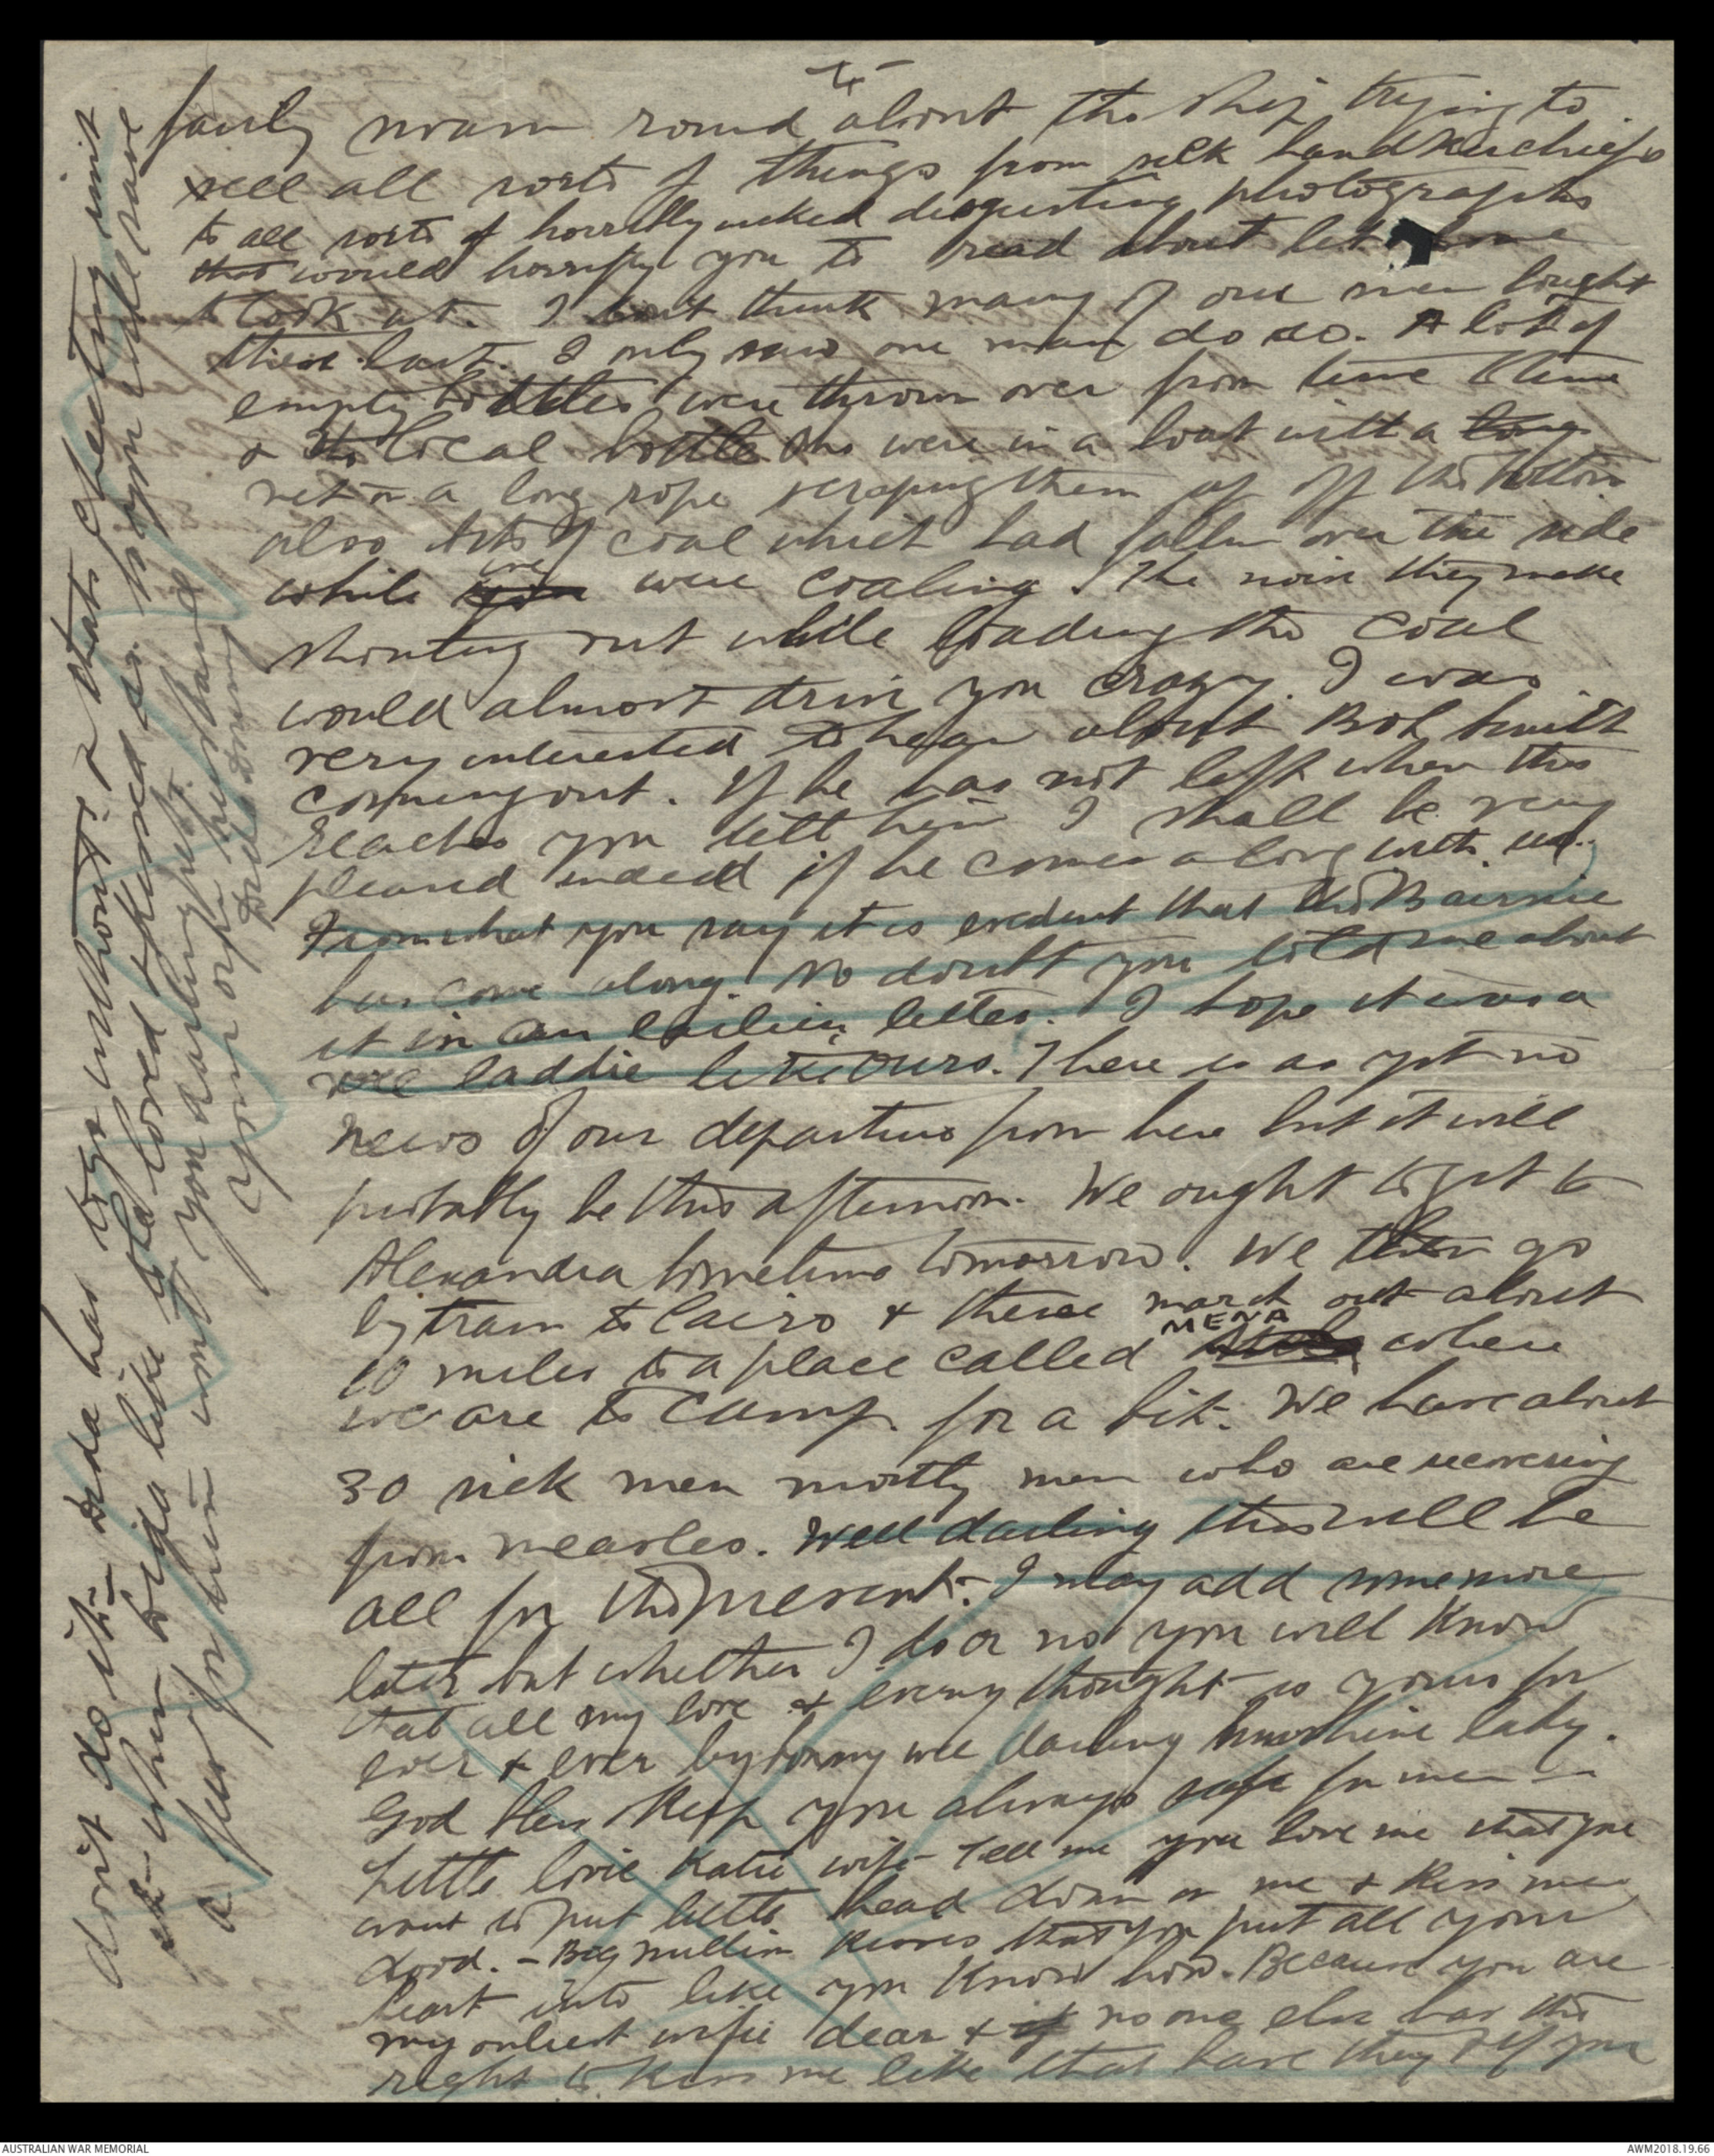 4
fairly swarm round about the ship trying to
sell all sorts of things from silk handkerchiefs
to all sorts of horribly naked disgusting photographs
that would horrify you to read about let alone
to look at. I don't think many of our men bought
these last. I only saw one man do so. A lot of
empty bottles were thrown over from time to time
& the local bottle ohs were in a boat with a long
net on a long rope scraping them up off the bottom
also lots of coal which had fallen over the side
while we were coaling. The noise they make
shouting out while loading the coal
would almost drive you crazy. I was
very interested to hear about Bob Smith
coming out. If he has not left when this
reaches you tell him I shall be very
pleased indeed if he comes along with us.
From what you say it is evident that the Bairnie
has come along. No doubt you told me about
it in an earlier letter. I hope it was a
wee laddie like ours. There is as yet no
news of our departure from here but it will
probably be this afternoon. We ought to get to
Alexandria sometime tomorrow. We then go
by train to Cairo & thence march out about
10 miles to a place called MENA where
we are to camp for a bit. We have about
30 sick men mostly men who are recovering
from measles. Well darling this will be
all for the present. I may add some more
later but whether I do or no you will know
that all my love & every thought is yours for
ever & ever my wee darling sunshine lady.
God bless & keep you always safe for me
Little lovie Katie wife Tell me you love me that you
want to put little head down on me & kiss me
dood. - Big million kisses that you put all your
heart into like you know how. Because you are
my onliest wifie dear & no one else has the
right to kiss me like that have they & if you
don't do it Dida has to go without & that's cheating isn't
it when Dida likes to be loved & kissed so. So you will save
a few for him won't you darling pet.
Your own husband
Dida Bunny
AUSTRALIAN WAR MEMORIAL
AWM2018.19.66